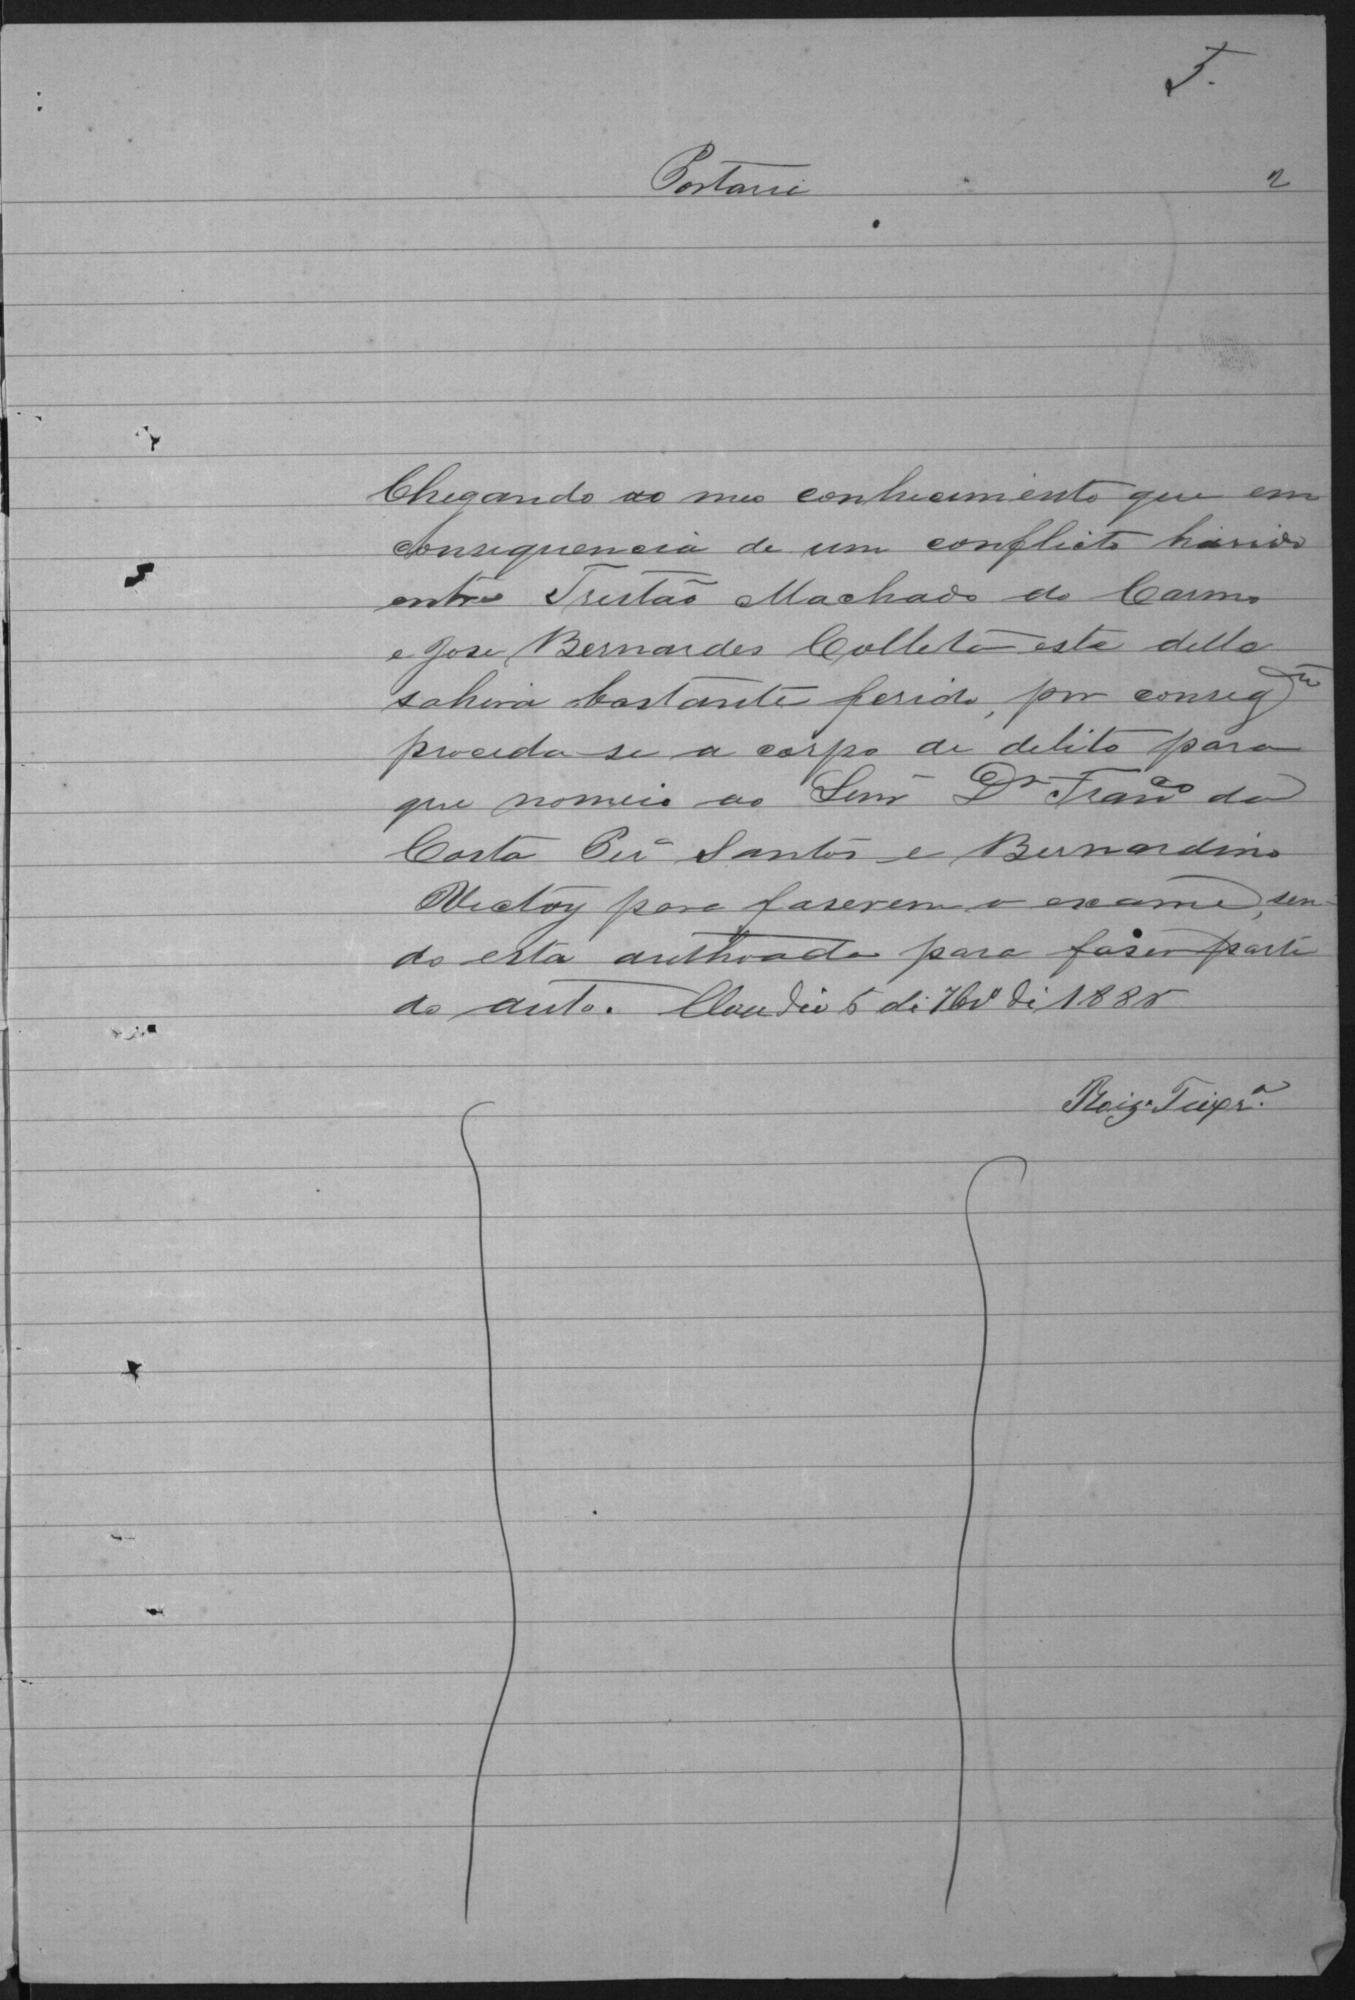 5.
2
Portaria
Chegando ao meo conhecimento que em
consequencia de um conflicto havido
entre Tristão Machado do Carmo
e Jose Bernardes Colleta esta delle
sahira bastante ferido, por conseg.te
proceda-se a corpo de delito para
que nomeio ao Senr Dr Franco da
Costa Per.a Santos e Bernardino
para faserem o exame, sen-
do esta authoada para faser parte
do auto. Claudio 5 de 7br.o de 1885
Roiz. Teixr.a